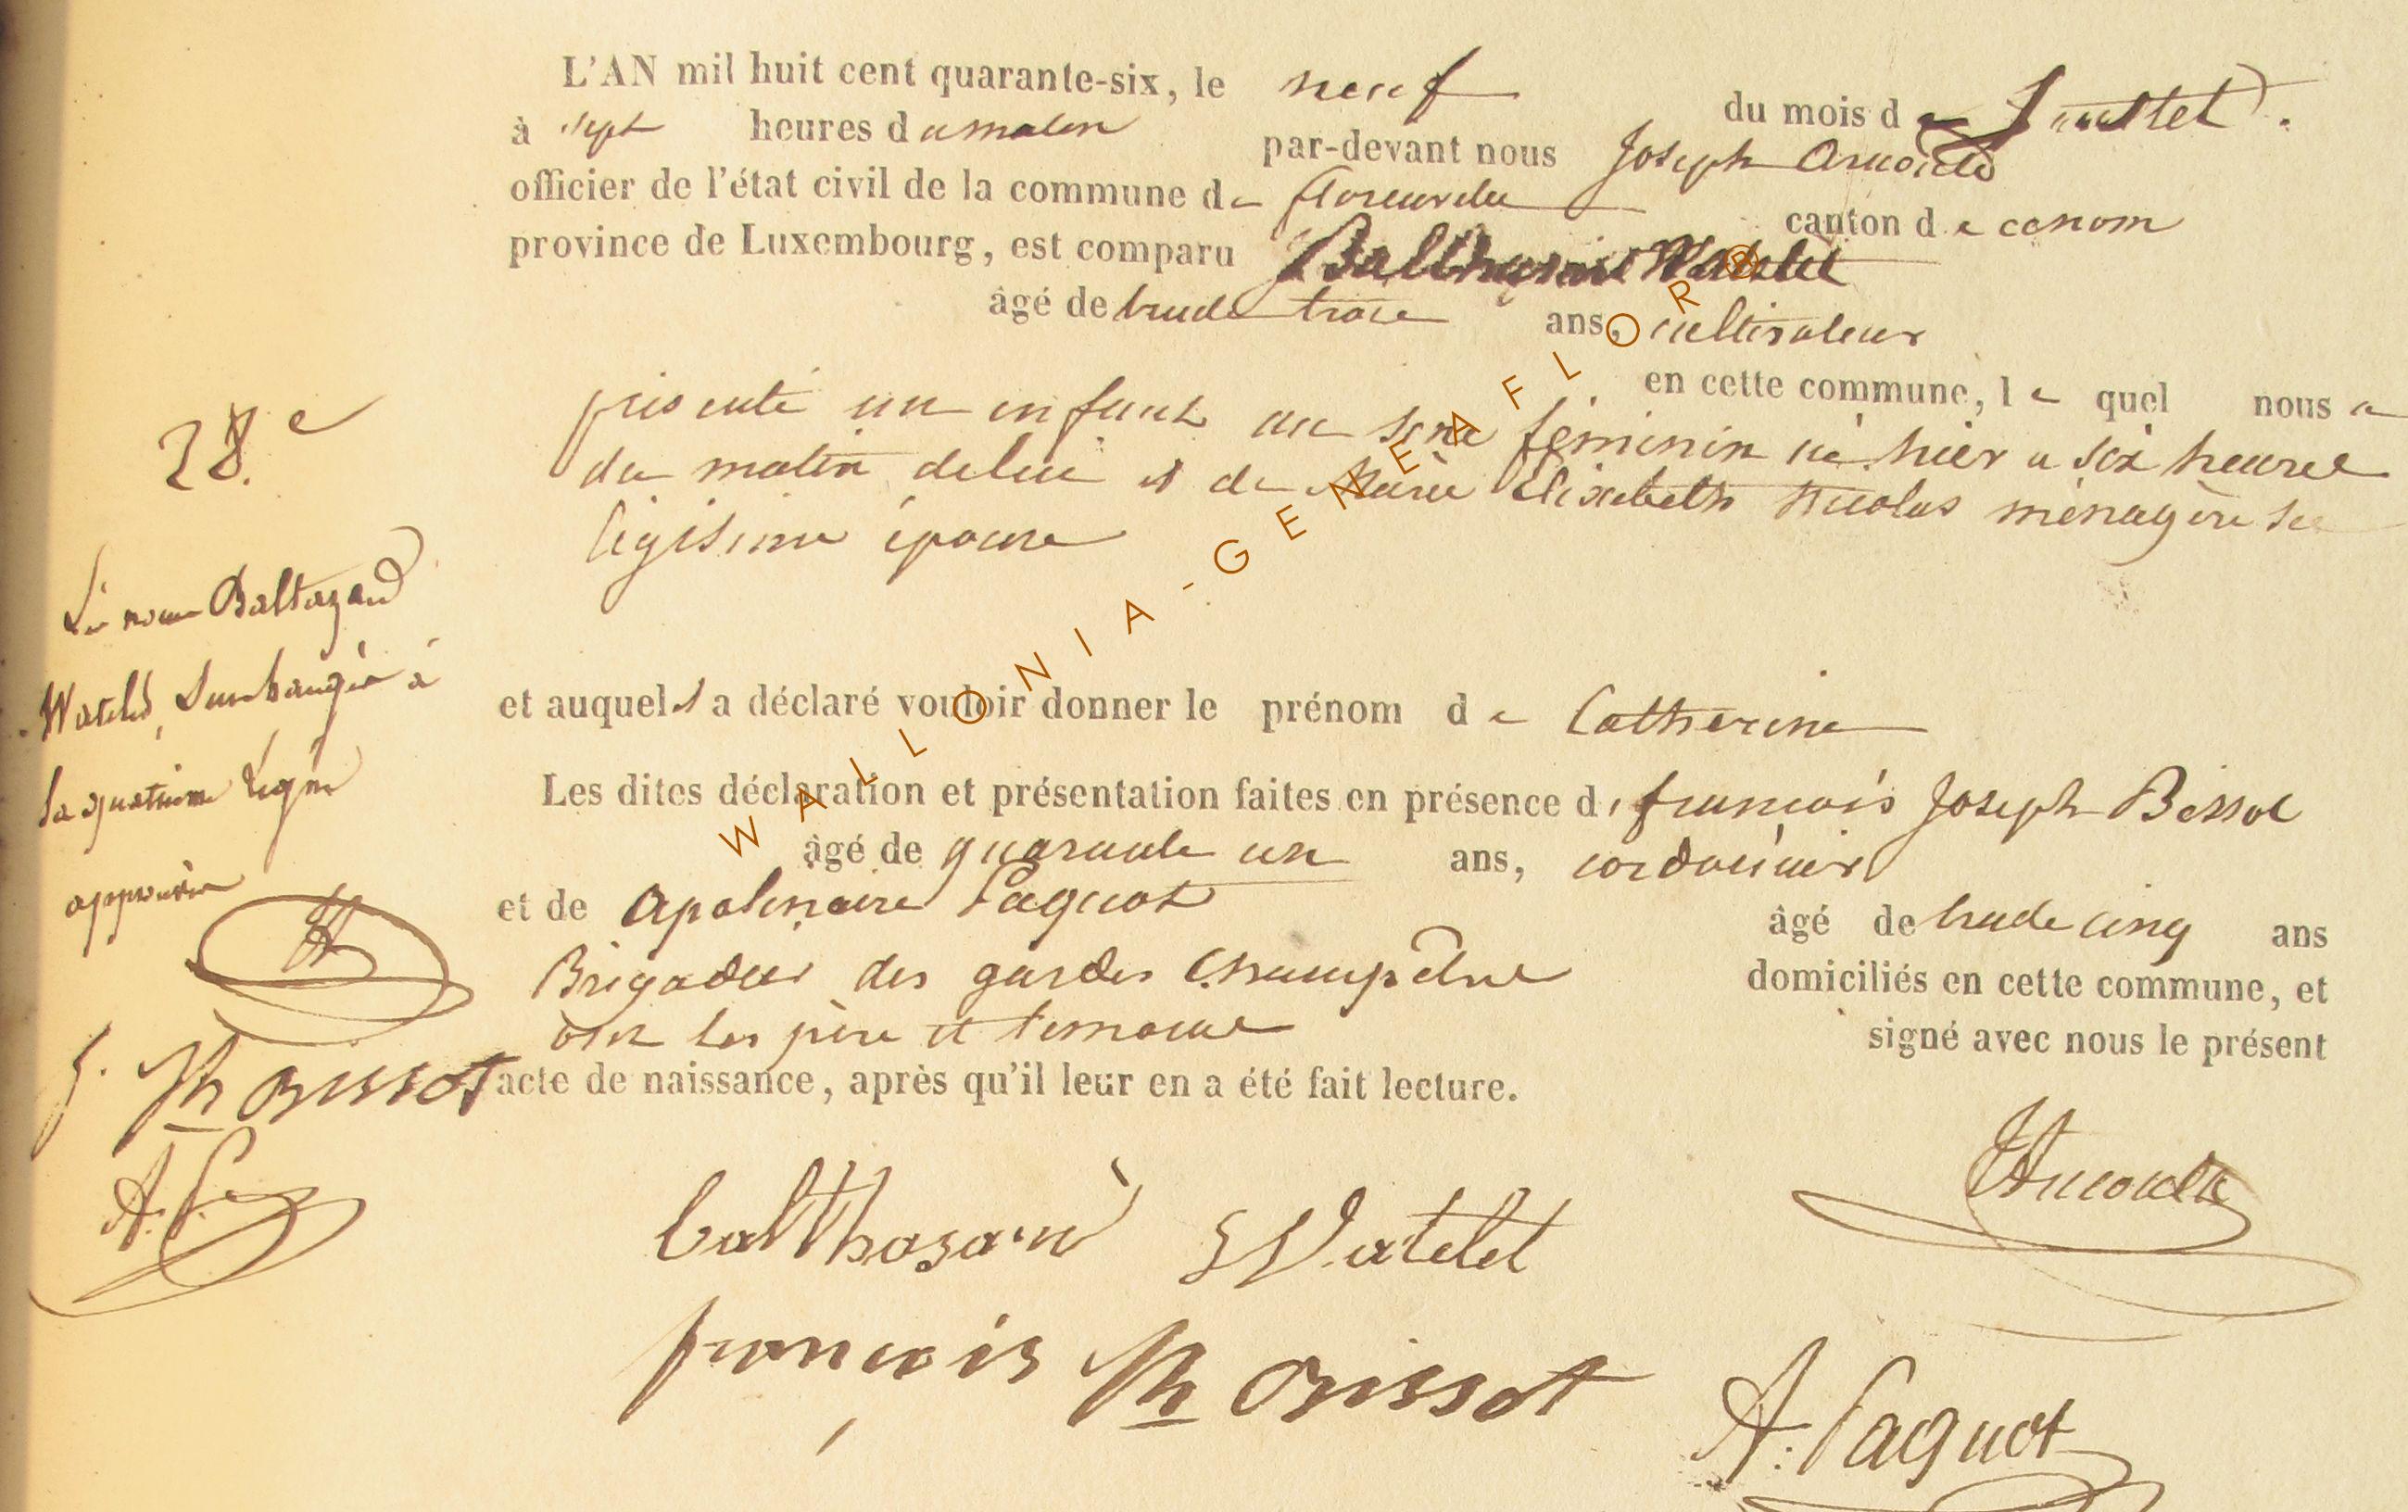 L'AN mil huit cent quarante-six, le neuf du mois de Juillet.
à sept heures du matin par-devant nous Joseph Arnould
officier de l'état civil de la commune de florenville canton de
province de Luxembourg, est comparu Balthazard Watelet
âgé de trente trois ans, cultivateur
en cette commune, le quel nous a
présenté un enfant du sexe féminin né hier a six heures
du matin de lui et de Marie Elizabeth Nicolas ménagère sa
légitime épouse
28.e
Le nom Baltazard
Watelet, Surchargée à
la quatrieme ligne
approuvée
et auquel il a déclaré vouloir donner le prénom de Catherine
Les dites déclaration et présentation faites en présence de francois Joseph
âgé de quarante un ans, cordonnier
et de apolinaire Paquot âgé de trente cinq ans
Brigadier des gardes Champêtre domiciliés en cette commune, et
ont les père et temoins signé avec nous le présent
acte de naissance, après qu'il leur en a été fait lecture.
A. P.
JArnould
balthazard Watelet
françois
A. Paquot
WALLONIA-GENEAFLOR®